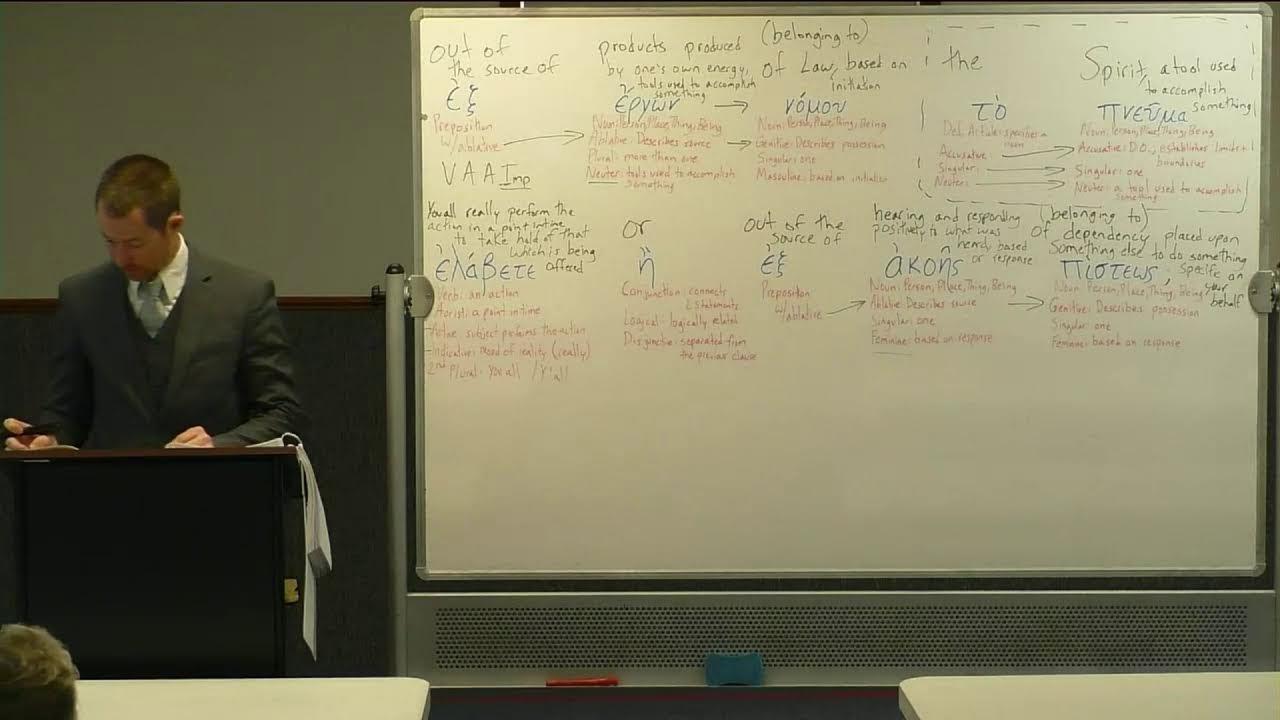 out of
the source of
ἐξ
Preposition
w/ablative
VAA Imp
products produced
by one's own energy,
tools used to accomplish
something
ἔργων
Noun: Person, Place, Thing, Being
Ablative: Describes source
Plural: more than one
Neuter: tools used to accomplish
something
(belonging to)
of Law, based on
initiation
νόμου
Noun: Person, Place, Thing, Being
Genitive: Describes possession
Singular: one
Masculine: based on initiation
the
τὸ
Def. Article: specifies a
noun
Accusative
Singular
Neuter
Spirit, a tool used
to accomplish
something
πνεῦμα
Noun: Person, Place, Thing, Being
Accusative: D.O., establishes limits +
boundaries
Singular: one
Neuter: a tool used to accomplish
something
You all really perform the
action in a point in time
to take hold of that
which is being
offered
ἐλάβετε
Verb: an action
Aorist: a point in time
Active: subject performs the action
Indicative: mood of reality (really)
2nd Plural: You all / Y'all
or
ἢ
Conjunction: connects
2 statements
Logical: logically related
Disjunctive: separated from
the previous clause
out of the
source of
ἐξ
Preposition
w/ablative
hearing and responding
positively to what was
heard, based
on response
ἀκοῆς
Noun: Person, Place, Thing, Being
Ablative: Describes source
Singular: one
Feminine: based on response
(belonging to)
of dependency placed upon
Something else to do something
specific on
your
behalf
πίστεως
Noun: Person, Place, Thing, Being
Genitive: Describes possession
Singular: one
Feminine: based on response